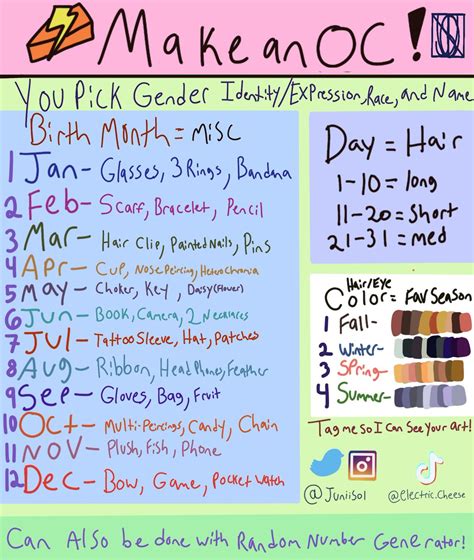 Make an OC!
You Pick Gender Identity/Expression, Race, and Name
Birth Month = misc
1 Jan- Glasses, 3 Rings, Bandana
2 Feb- Scarf, Bracelet, Pencil
3 Mar- Hair Clip, Painted Nails, Pins
4 Apr- Cup, Nose Peircing, Hetero Chromia
5 May- Choker, Key, Daisy (Flower)
6 Jun- Book, Camera, 2 Necklaces
7 Jul- Tattoo Sleeve, Hat, Patches
8 Aug- Ribbon, Head Phones, Feather
9 Sep- Gloves, Bag, Fruit
10 Oct- Multi-Peircings, Candy, Chain
11 Nov- Plush, Fish, Phone
12 Dec- Bow, Game, Pocket Watch
Day = Hair
1-10 = long
11-20 = short
21-31 = med
Hair/Eye
Color = Fav Season
1 Fall-
2 Winter-
3 Spring-
4 Summer-
Tag me so I Can See Your Art!
@JuniiSol
@electric.cheese
Can Also be done with Random Number Generator!